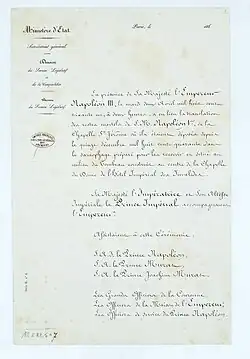 Ministère d'État
Secrétariat général
Paris, le 186
Division
du Palais Législatif
et de la Comptabilité
Bureau
du Palais Législatif
En présence de Sa Majesté l'Empereur
Napoléon III, le mardi deux Avril mil huit cent
soixante un, à deux heures, a eu lieu la translation
des restes mortels de S. M. Napoléon Ier, de la
Chapelle St Jérôme où ils étaient déposés depuis
le quinze décembre mil huit cent quarante dans
le sarcophage préparé pour les recevoir et situé au
milieu du tombeau construit au centre de la Chapelle
du Dôme de l'Hôtel Impérial des Invalides.
Sa Majesté l'Impératrice et Son Altesse
Impériale le Prince Impérial accompagnaient
l'Empereur.
Assistaient à cette Cérémonie,
S. A. I. le Prince Napoléon,
S. A. le Prince Murat,
S. A. le Prince Joachim Murat,
Les Grands Officiers de la Couronne,
Les Officiers de la Maison de l'Empereur,
Les Officiers de service du Prince Napoléon,